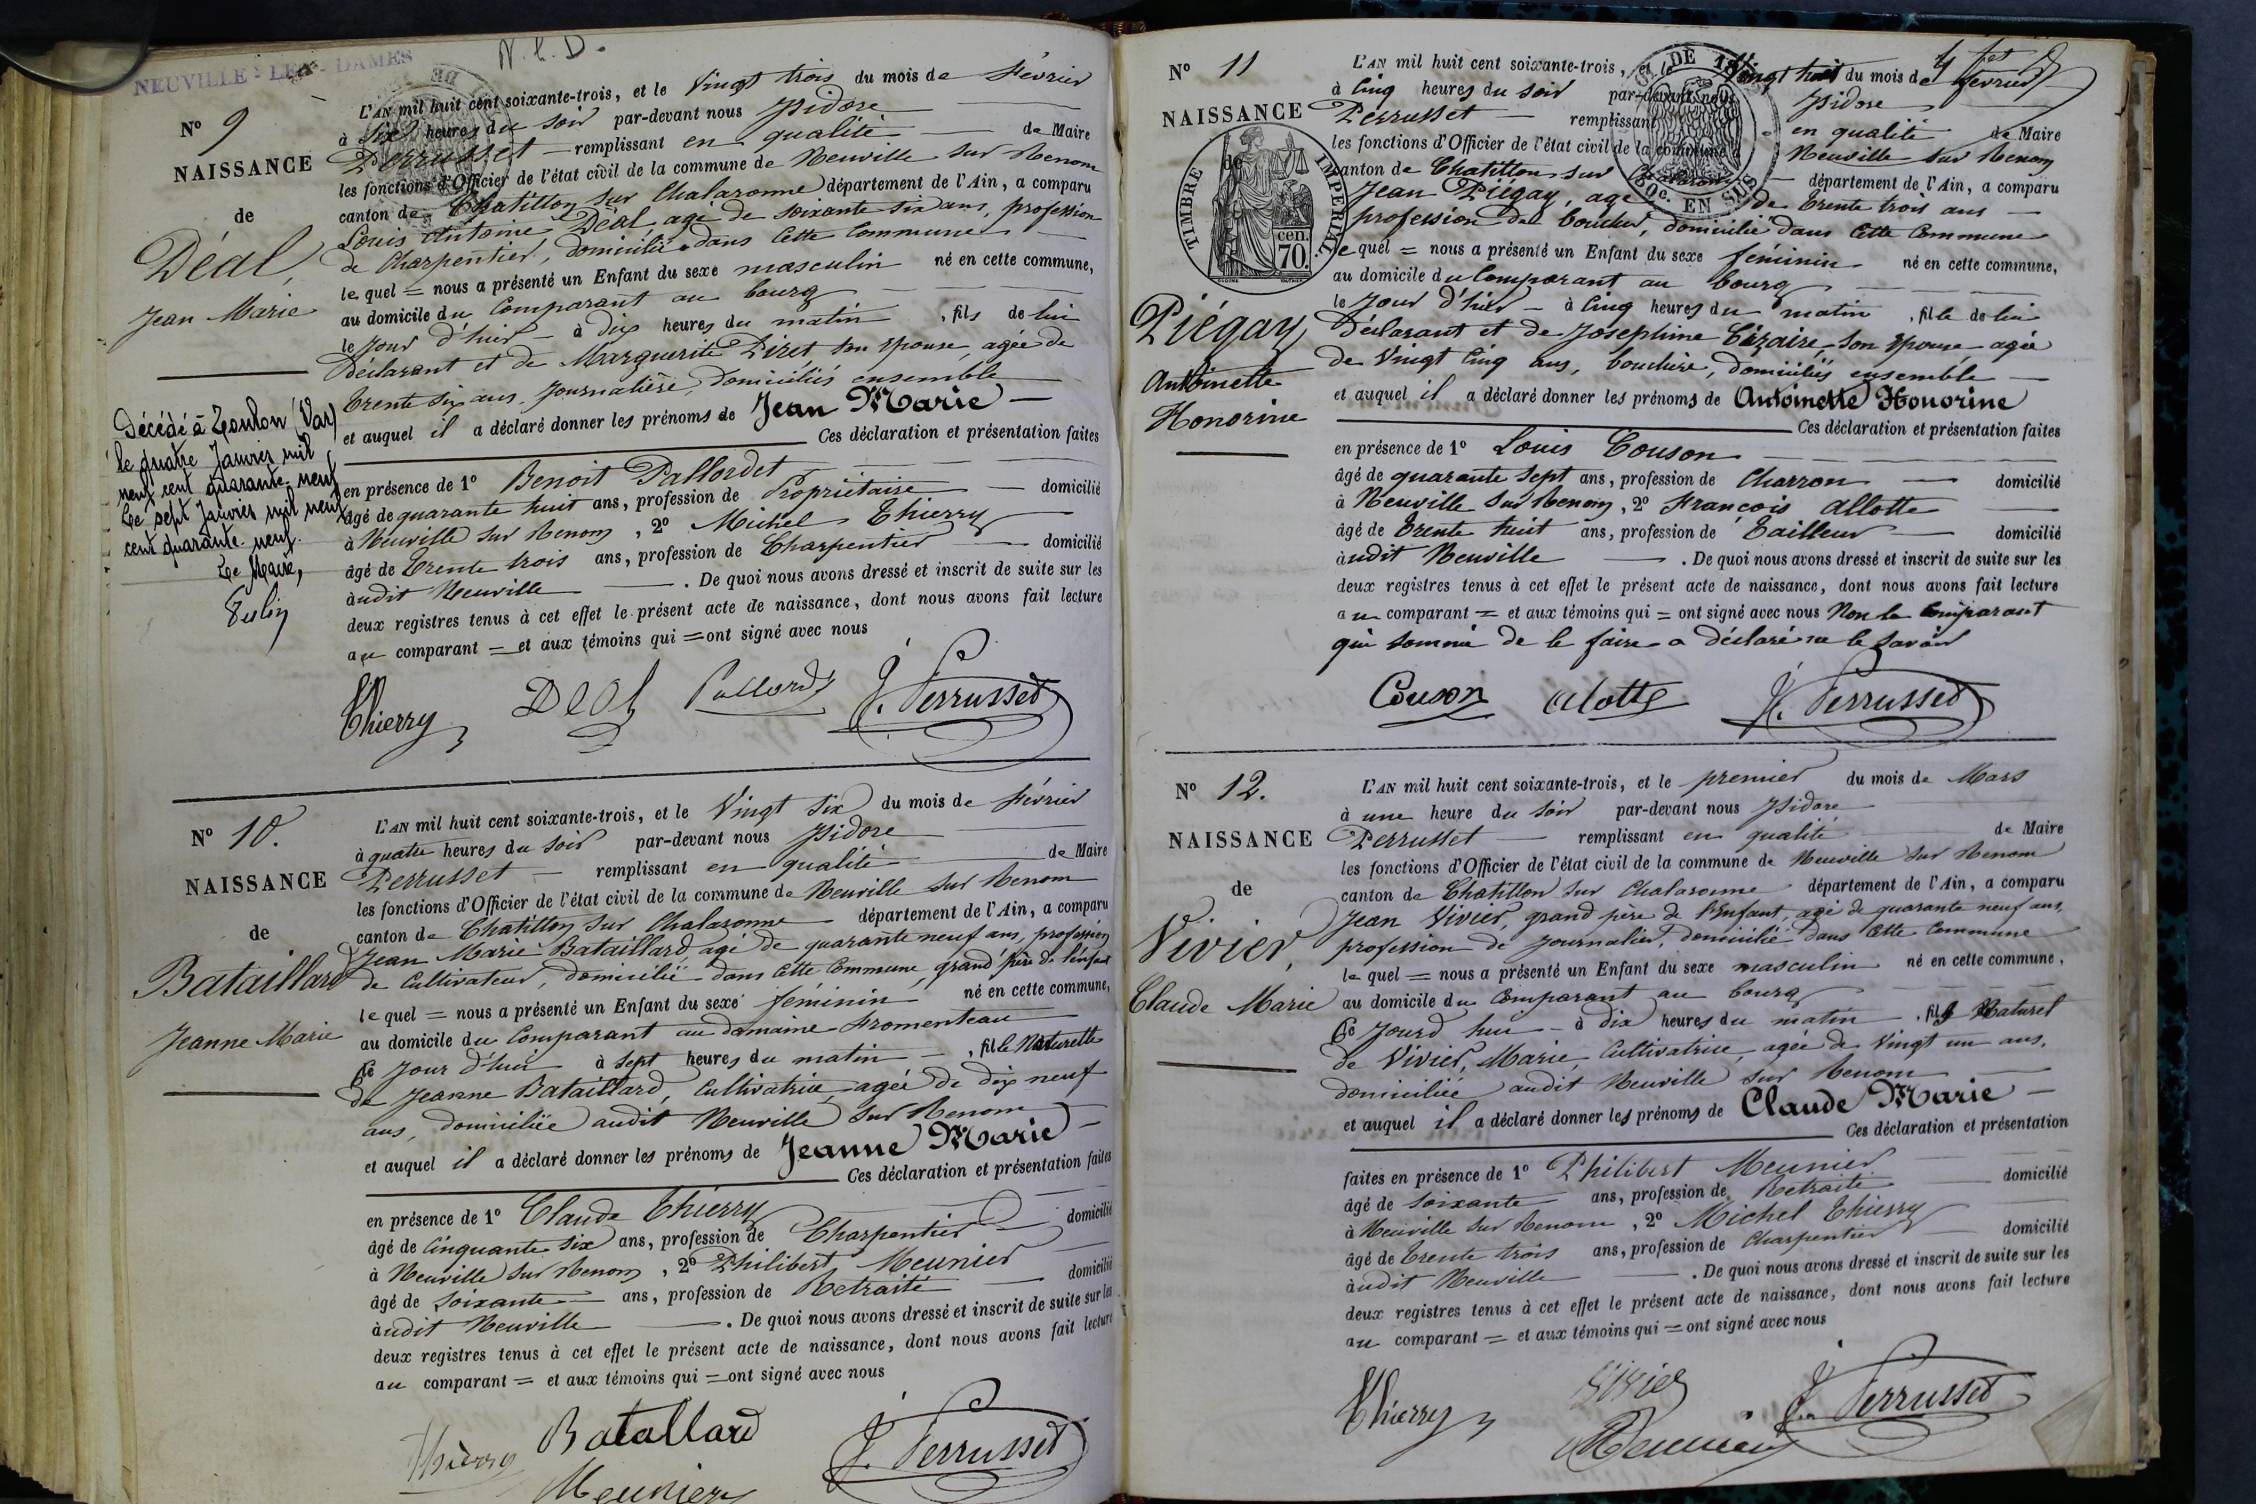 NEUVILLE-LES-DAMES
N. L. D.
N° 9
NAISSANCE
de
Déal,
Jean Marie
Décédé à Toulon (Var)
le quatre Janvier mil
neuf cent quarante-neuf
Le sept Janvier mil neuf
cent quarante-neuf.
Le Maire,
L'AN mil huit cent soixante-trois, et le Vingt trois du mois de Février
à Six heures du soir par-devant nous Isidore
Perrusset remplissant en qualité de Maire
les fonctions d'Officier de l'état civil de la commune de Neuville sur Renom
canton de Chatillon sur Chalaronne département de l'Ain, a comparu
Louis Antoine Déal, agé de soixante six ans, profession
de Charpentier, domicilié dans cette Commune
lequel = nous a présenté un Enfant du sexe masculin né en cette commune,
au domicile du Comparant au bourg
le jour d'hier à dix heures du matin, fils de lui
Déclarant et de Marguerite Piret, son épouse, agée de
trente six ans, Journalière, domiciliés ensemble
et auquel il a déclaré donner les prénoms de Jean Marie
Ces déclaration et présentation faites
en présence de 1° Benoit Pallordet
âgé de quarante huit ans, profession de Propriétaire domicilié
à Neuville sur Renom, 2° Michel Thierry
âgé de Trente trois ans, profession de Charpentier domicilié
àudit Neuville. De quoi nous avons dressé et inscrit de suite sur les
deux registres tenus à cet effet le présent acte de naissance, dont nous avons fait lecture
au comparant = et aux témoins qui = ont signé avec nous
Thierry Deal Pallordet J. Perrusset
N° 10.
NAISSANCE
de
Bataillard
Jeanne Marie
L'AN mil huit cent soixante-trois, et le Vingt six du mois de Février
à quatre heures du soir par-devant nous Isidore
Perrusset remplissant en qualité de Maire
les fonctions d'Officier de l'état civil de la commune de Neuville sur Renom
canton de Chatillon sur Chalaronne département de l'Ain, a comparu
Jean Marie Bataillard, agé de quarante neuf ans, profession
de Cultivateur, domicilié dans cette Commune, grand père de l'enfant
lequel = nous a présenté un Enfant du sexe féminin né en cette commune,
au domicile du Comparant au domaine Fromenteau
Ce Jour d'hui à sept heures du matin, fille Naturelle
de Jeanne Bataillard, Cultivatrice, agée de dix neuf
ans, domiciliée audit Neuville sur Renom
et auquel il a déclaré donner les prénoms de Jeanne Marie
Ces déclaration et présentation faites
en présence de 1° Claude Thierry
âgé de Cinquante six ans, profession de Charpentier domicilié
à Neuville sur Renom, 2° Philibert Meunier
âgé de soixante ans, profession de Retraité domicilié
àudit Neuville. De quoi nous avons dressé et inscrit de suite sur les
deux registres tenus à cet effet le présent acte de naissance, dont nous avons fait lecture
au comparant = et aux témoins qui = ont signé avec nous
Thierry Batallard J. Perrusset
Meunier
N° 11
NAISSANCE
de
TIMBRE IMPERIAL
70 cen.
50c. EN SUS
Piégay
Antoinette
Honorine
L'AN mil huit cent soixante-trois, et le Vingt huit du mois de février
à Cinq heures du soir par-devant nous Isidore
Perrusset remplissant en qualité de Maire
les fonctions d'Officier de l'état civil de la commune de Neuville sur Renom
canton de Chatillon sur Chalaronne département de l'Ain, a comparu
Jean Piégay, agé de trente trois ans
profession de boucher, domicilié dans cette Commune
lequel = nous a présenté un Enfant du sexe féminin né en cette commune,
au domicile du Comparant au bourg
le jour d'hier à Cinq heures du matin, fille de lui
Déclarant et de Joséphine Cézaire, son épouse agée
de Vingt Cinq ans, bouchère, domiciliés ensemble
et auquel il a déclaré donner les prénoms de Antoinette Honorine
Ces déclaration et présentation faites
en présence de 1° Louis Couson
âgé de quarante sept ans, profession de Charron domicilié
à Neuville sur Renom, 2° François Allotte
âgé de Trente huit ans, profession de Tailleur domicilié
àudit Neuville. De quoi nous avons dressé et inscrit de suite sur les
deux registres tenus à cet effet le présent acte de naissance, dont nous avons fait lecture
au comparant = et aux témoins qui = ont signé avec nous Non le Comparant
qui sommé de le faire a déclaré ne le savoir
Couson Alotte J. Perrusset
N° 12.
NAISSANCE
de
Vivier,
Claude Marie
L'AN mil huit cent soixante-trois, et le premier du mois de Mars
à une heure du soir par-devant nous Isidore
Perrusset remplissant en qualité de Maire
les fonctions d'Officier de l'état civil de la commune de Neuville sur Renom
canton de Chatillon sur Chalaronne département de l'Ain, a comparu
Jean Vivier, grand père de l'Enfant, agé de quarante neuf ans,
profession de Journalier, domicilié dans cette Commune
lequel = nous a présenté un Enfant du sexe masculin né en cette commune,
au domicile du Comparant au bourg
Ce Jourd'hui à dix heures du matin, fils Naturel
de Vivier, Marie, Cultivatrice, agée de Vingt un ans,
domiciliée audit Neuville sur Renom
et auquel il a déclaré donner les prénoms de Claude Marie
Ces déclaration et présentation
faites en présence de 1° Philibert Meunier
âgé de soixante ans, profession de Retraité domicilié
à Neuville sur Renom, 2° Michel Thierry
âgé de Trente trois ans, profession de Charpentier domicilié
àudit Neuville. De quoi nous avons dressé et inscrit de suite sur les
deux registres tenus à cet effet le présent acte de naissance, dont nous avons fait lecture
au comparant = et aux témoins qui = ont signé avec nous
Thierry Vivier J. Perrusset
Meunier